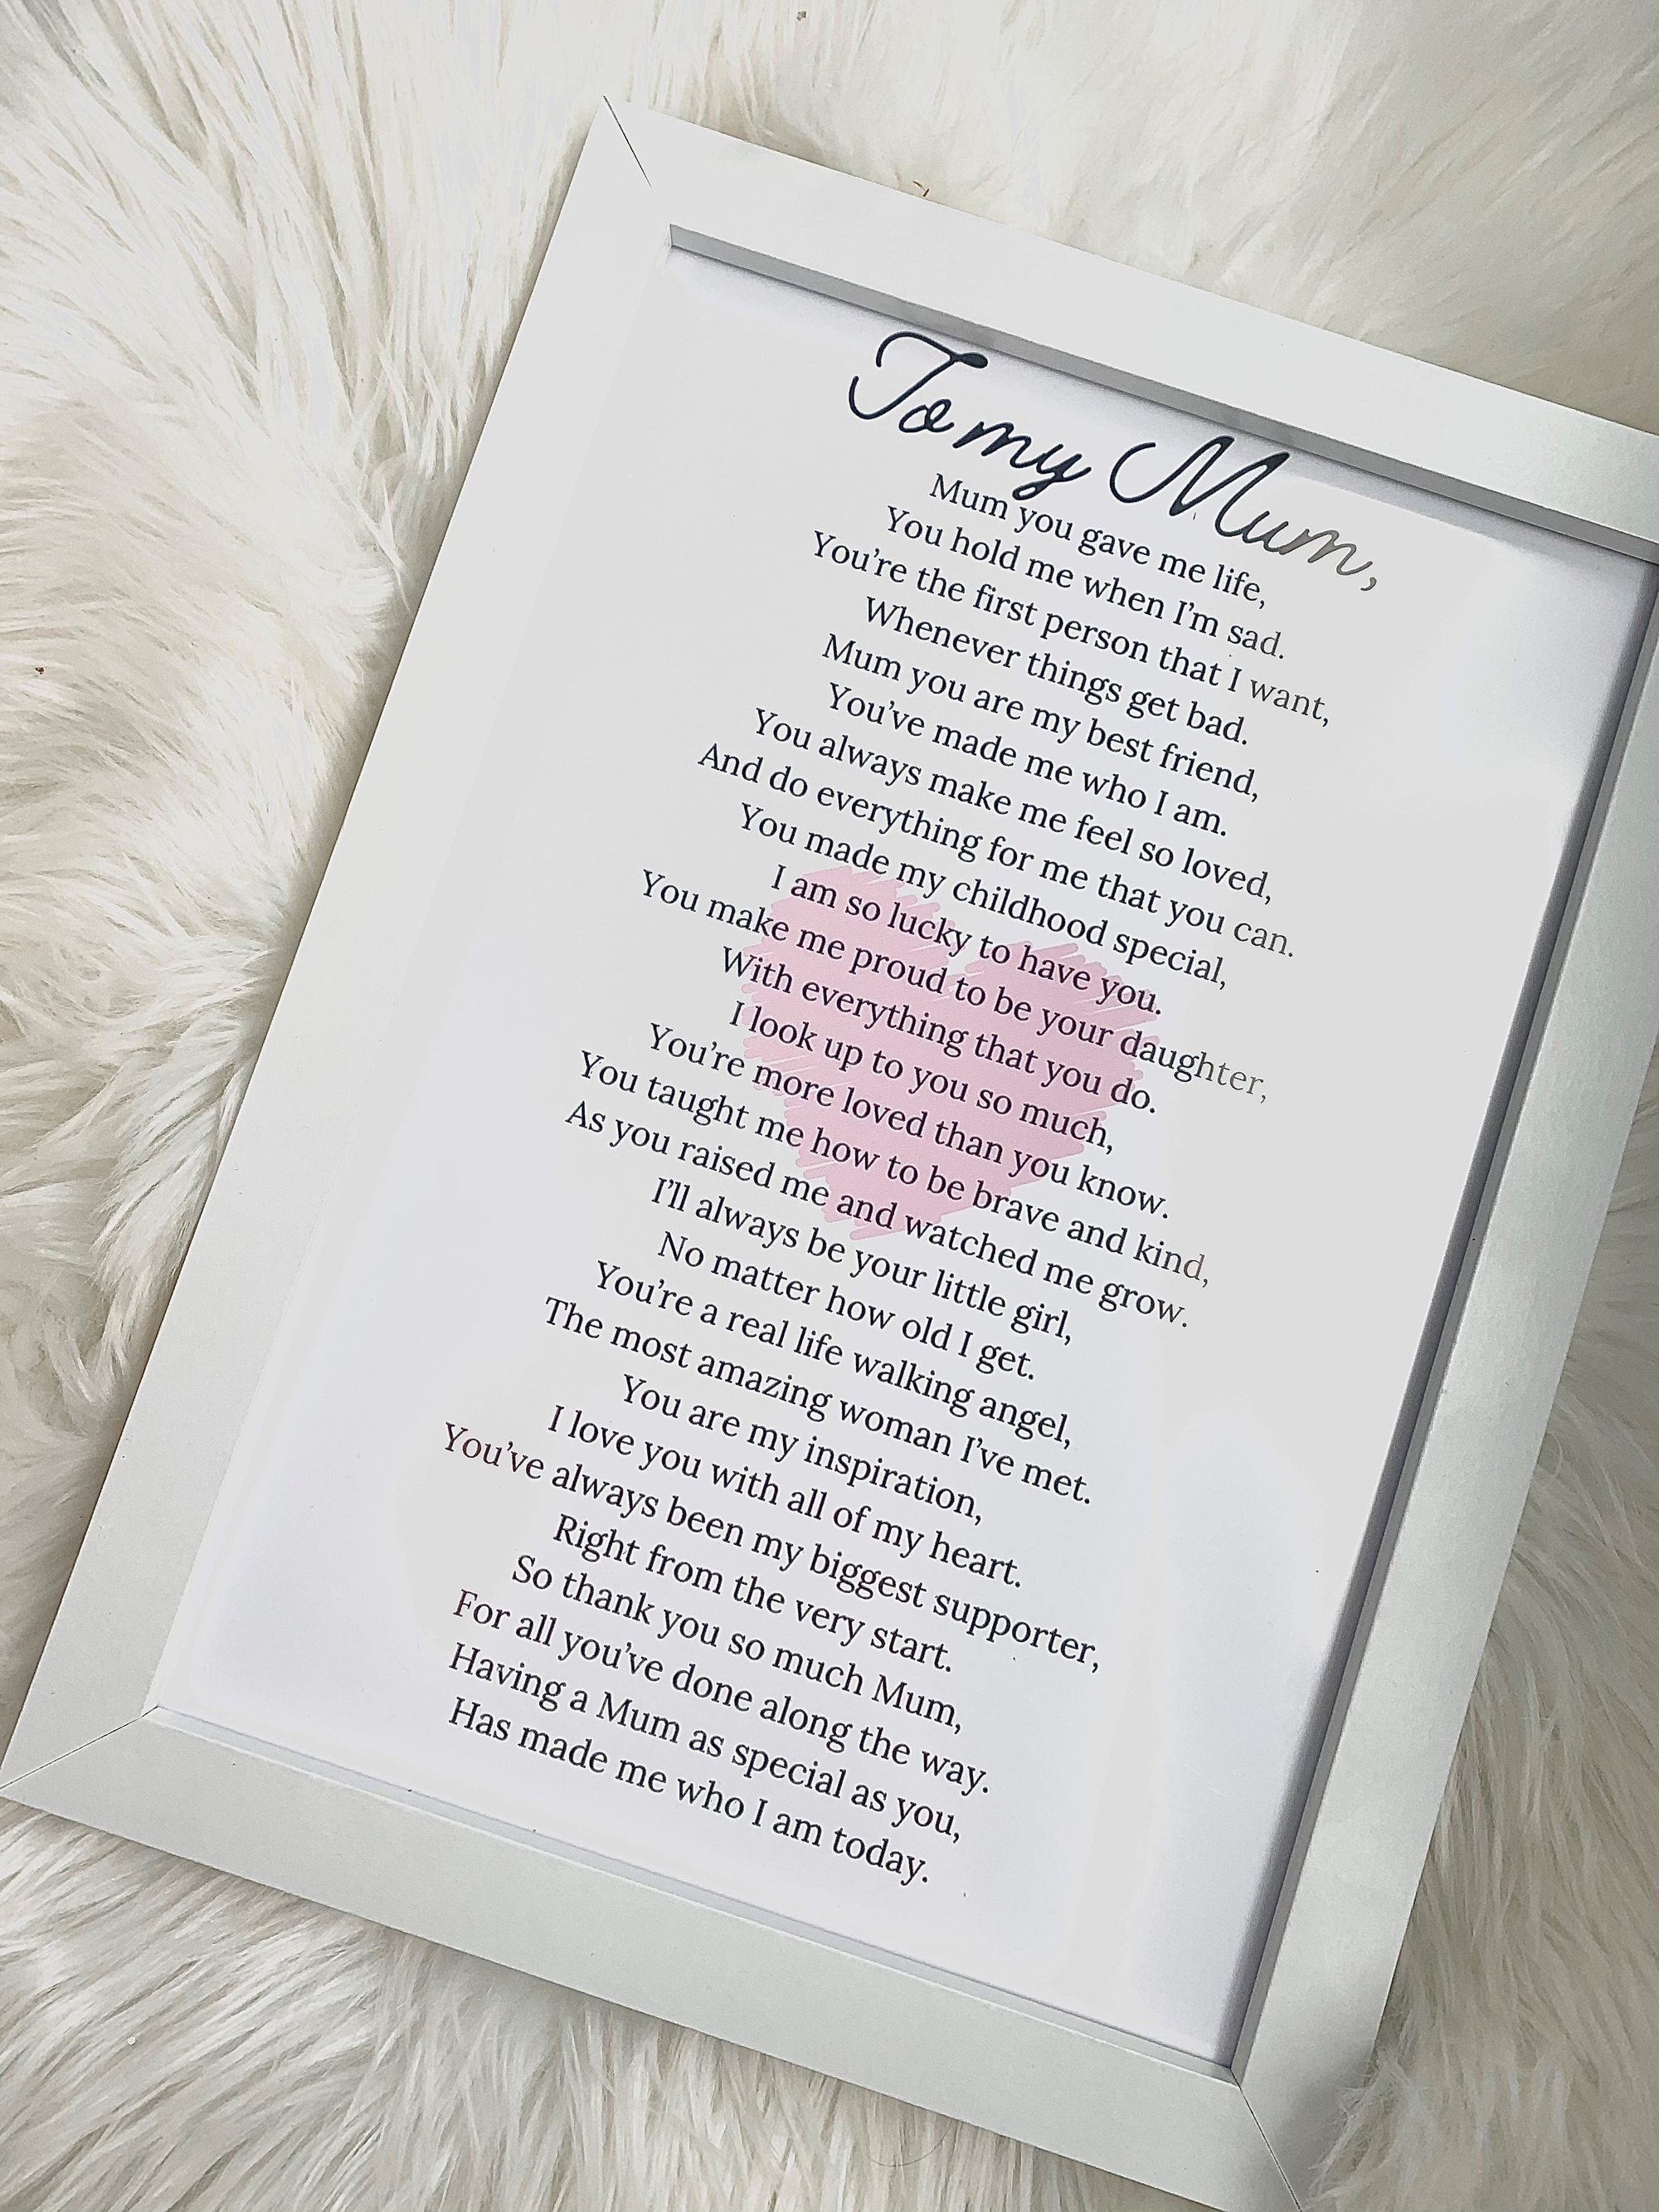 To my Mum,
Mum you gave me life,
You hold me when I'm sad.
You're the first person that I want,
Whenever things get bad.
Mum you are my best friend,
You've made me who I am.
You always make me feel so loved,
And do everything for me that you can.
You made my childhood special,
I am so lucky to have you.
You make me proud to be your daughter,
With everything that you do.
I look up to you so much,
You're more loved than you know.
You taught me how to be brave and kind,
As you raised me and watched me grow.
I'll always be your little girl,
No matter how old I get.
You're a real life walking angel,
The most amazing woman I've met.
You are my inspiration,
I love you with all of my heart.
You've always been my biggest supporter,
Right from the very start.
So thank you so much Mum,
For all you've done along the way.
Having a Mum as special as you,
Has made me who I am today.